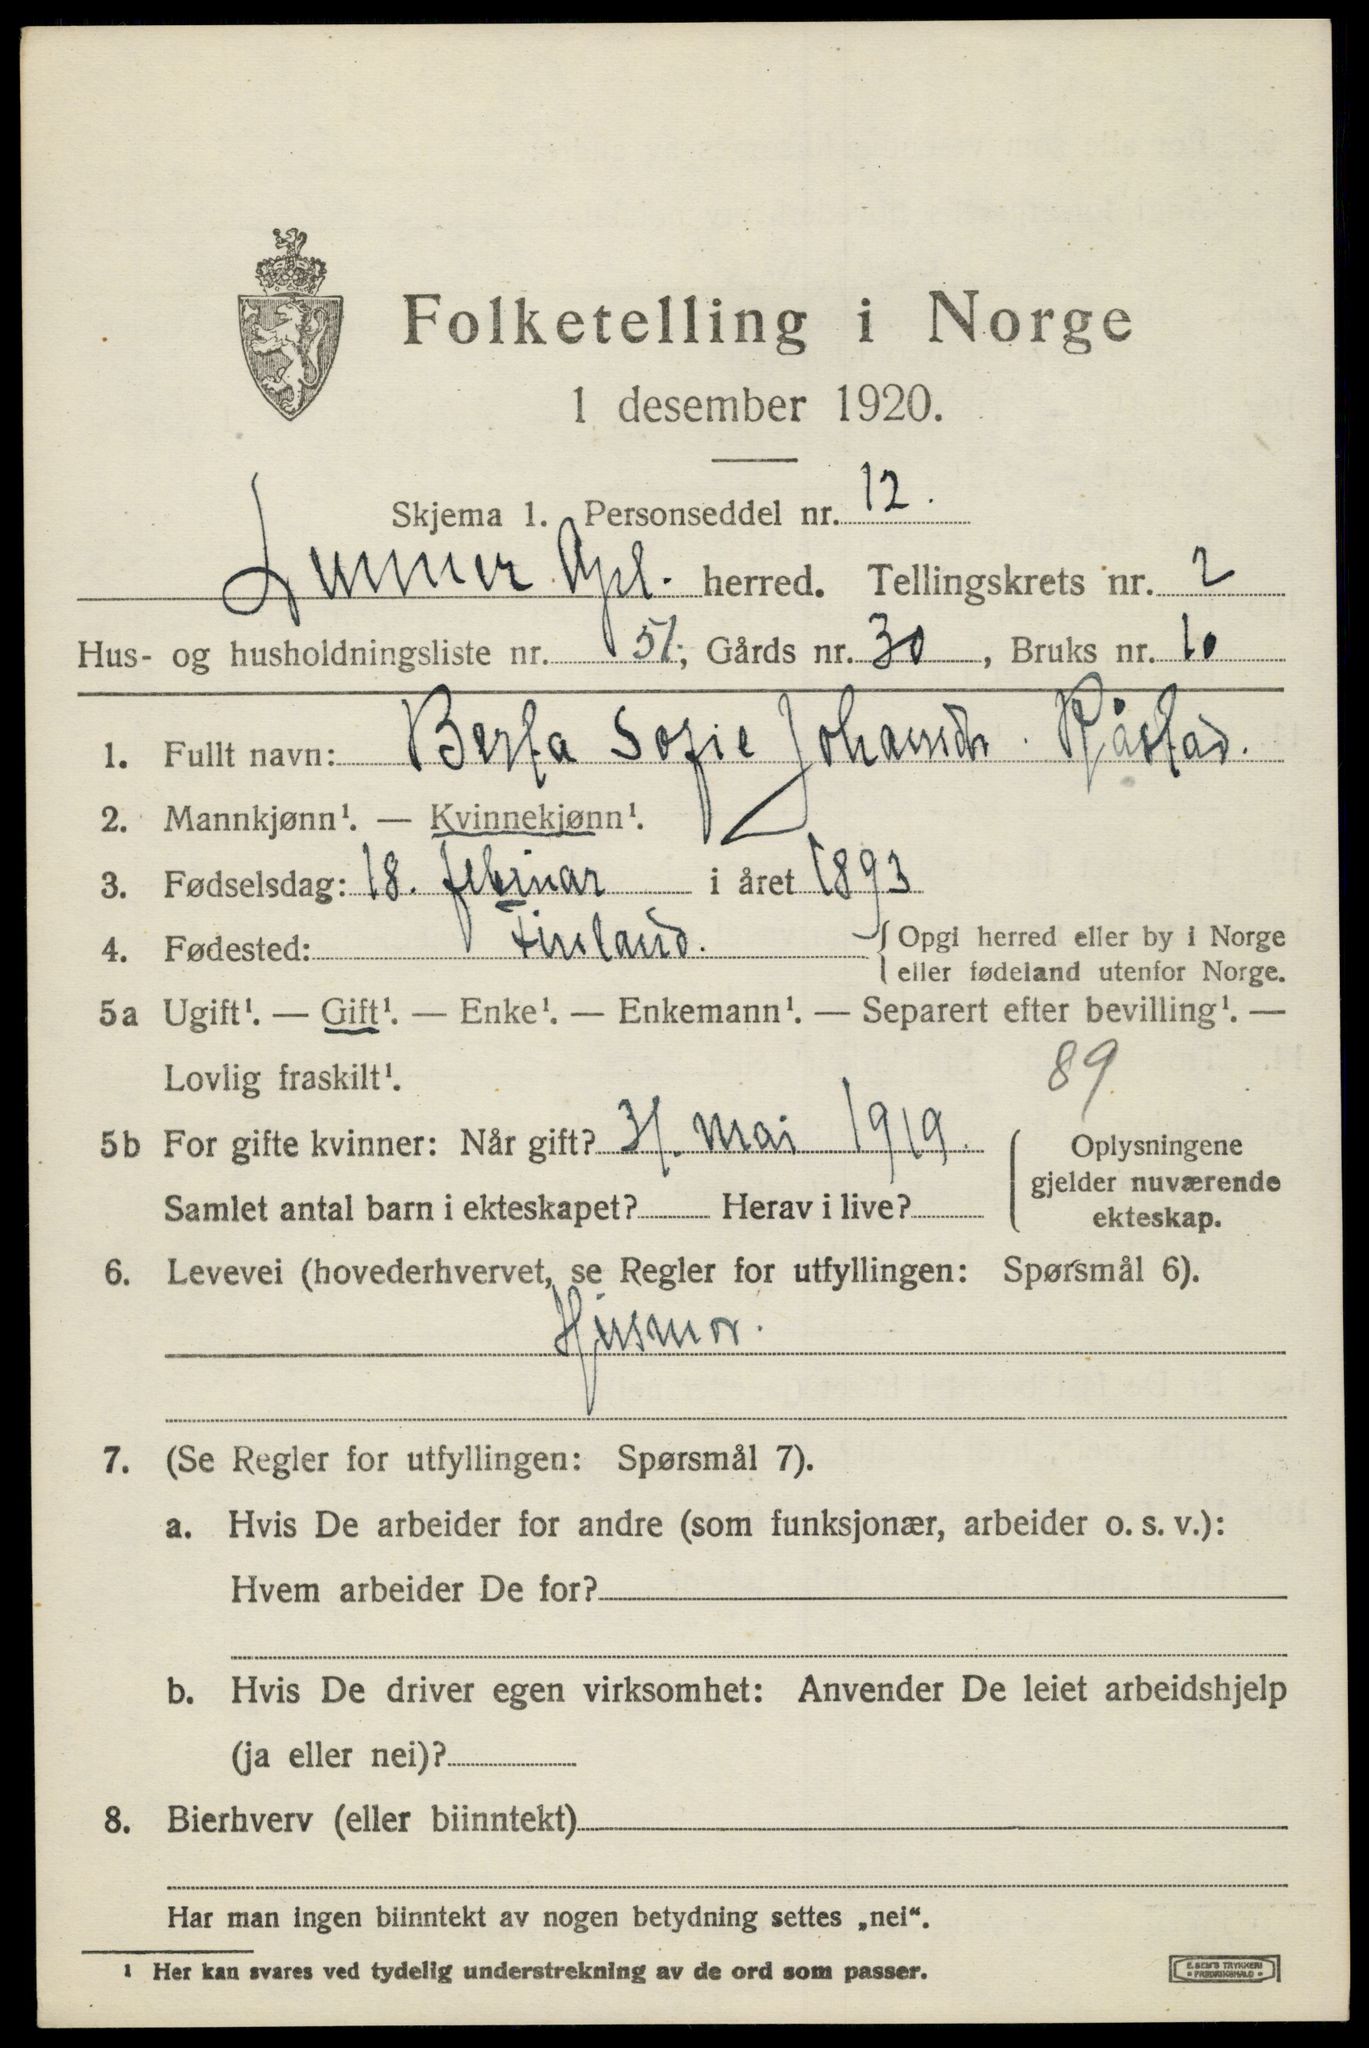 Folketelling i Norge
1 desember 1920.
Skjema 1. Personseddel nr. 12.
Lunner Opl. herred. Tellingskrets nr. 2
Hus- og husholdningsliste nr. 51; Gårds nr. 30, Bruks nr. 10
1. Fullt navn: Berta Sofie Johansdtr. Råstad.
2. Mannkjønn¹. — Kvinnekjønn¹.
3. Fødselsdag: 18. februar i året 1893
4. Fødested: Finland. { Opgi herred eller by i Norge
eller fødeland utenfor Norge.
5a Ugift¹. — Gift¹. — Enke¹. — Enkemann¹. — Separert efter bevilling¹. —
Lovlig fraskilt¹. 89
5b For gifte kvinner: Når gift? 31. mai 1919. Oplysningene
gjelder nuværende
Samlet antal barn i ekteskapet? Herav i live? ekteskap.
6. Levevei (hovederhvervet, se Regler for utfyllingen: Spørsmål 6).
Husmor.
7. (Se Regler for utfyllingen: Spørsmål 7).
a. Hvis De arbeider for andre (som funksjonær, arbeider o. s. v.):
Hvem arbeider De for?
b. Hvis De driver egen virksomhet: Anvender De leiet arbeidshjelp
(ja eller nei)?
8. Bierhverv (eller biinntekt)
Har man ingen biinntekt av nogen betydning settes „nei“.
¹ Her kan svares ved tydelig understrekning av de ord som passer.
E. SEM'S TRYKKERI
FREDRIKSHALD